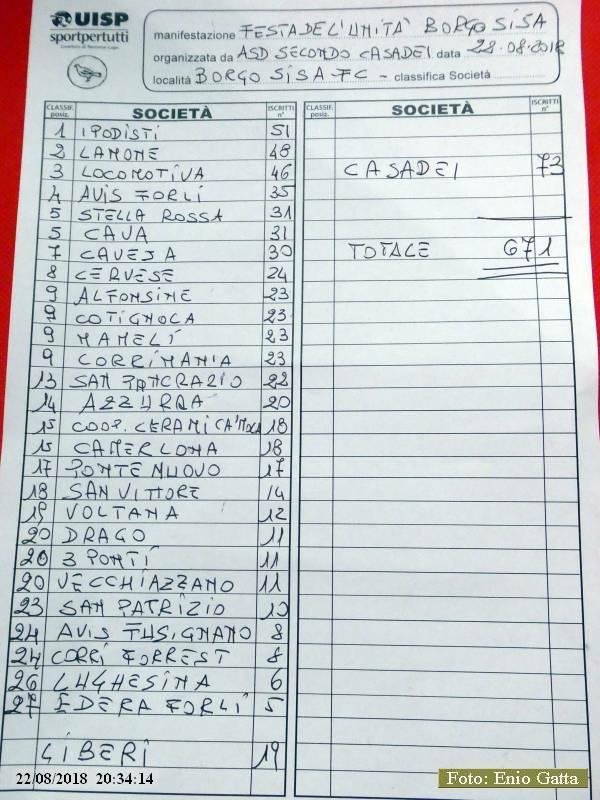 UISP
sportpertutti
manifestazione FESTA DEL'UNITÀ BORGO SISA
organizzata da ASD SECONDO CASADEI data 22.08.2018
località BORGO SISA-FC - classifica Società
CLASSIF. posiz. SOCIETÀ ISCRITTI n°
1 IPODISTI 51
2 LAMONE 48
3 LOCOMOTIVA 46
4 AVIS FORLÌ 35
5 STELLA ROSSA 31
5 CAVA 31
7 CAVEJA 30
8 CERVESE 24
9 ALFONSINE 23
9 COTIGNOLA 23
9 MAMELI 23
9 CORRIMANIA 23
13 SAN PANCRAZIO 22
14 AZZURRA 20
15 COOP. CERAMICA IMOLA 18
15 CAMERLONA 18
17 PONTE NUOVO 17
18 SAN VITTORE 14
19 VOLTANA 12
20 DRAGO 11
20 3 PONTI 11
20 VECCHIAZZANO 11
23 SAN PATRIZIO 10
24 AVIS FUSIGNANO 8
24 CORRI FORREST 8
26 LUGHESINA 6
27 EDERA FORLÌ 5
LIBERI 19
CLASSIF. posiz. SOCIETÀ ISCRITTI n°
CASADEI 73
TOTALE 671
22/08/2018 20:34:14
Foto: Enio Gatta